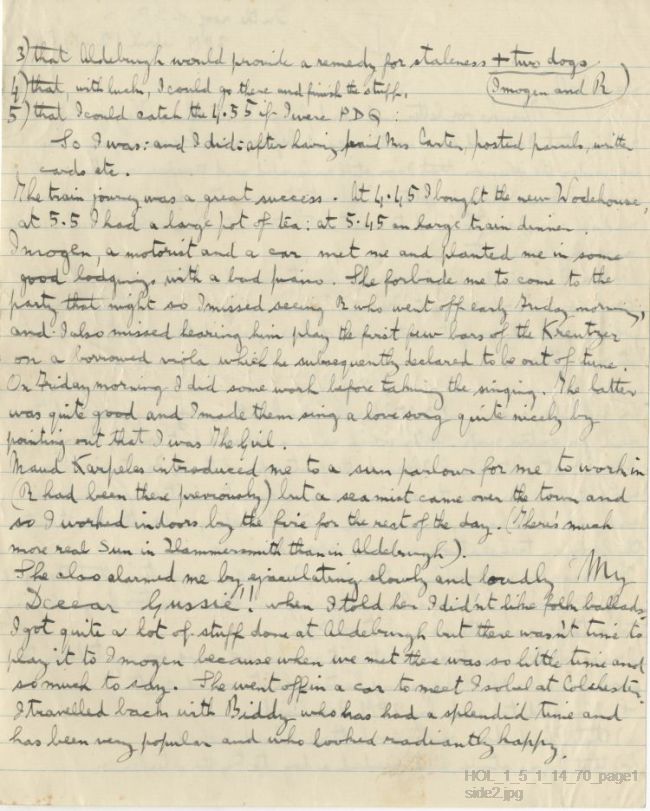 3) that Aldeburgh would provide a remedy for staleness + two dogs
4) that, with luck, I could go there and finish the stuff. (Imogen and R)
5) that I could catch the 4.35 if I were PDQ :
So I was: and I did: after having paid Mrs Carter, posted parcels, written
cards etc.
The train journey was a great success. At 4.45 I bought the new Wodehouse,
at 5.5 I had a large pot of tea: at 5.45 an large train dinner.
Imogen, a motorist and a car met me and planted me in some
good lodgings with a bad piano. She forbade me to come to the
party that night so I missed seeing R who went off early Friday morning,
and I also missed hearing him play the first few bars of the Kreutzer
on a borrowed viola which he subsequently declared to be out of tune.
On Friday morning I did some work before taking the singing. The latter
was quite good and I made them sing a love song quite nicely by
pointing out that I was The Girl.
Maud Karpeles introduced me to a sun parlour for me to work in
(R had been there previously) but a sea mist came over the town and
so I worked indoors by the fire for the rest of the day. (There's much
more real Sun in Hammersmith than in Aldeburgh).
She also alarmed me by ejaculating slowly and loudly My
Deeear Gussie!! when I told her I didn't like folk ballads.
I got quite a lot of stuff done at Aldeburgh but there wasn't time to
play it to Imogen because when we met there was so little time and
so much to say. She went off in a car to meet Isobel at Colchester.
I travelled back with Biddy who has had a splendid time and
has been very popular and who looked radiantly happy.
HOL_1_5_1_14_70_page1
side2.jpg